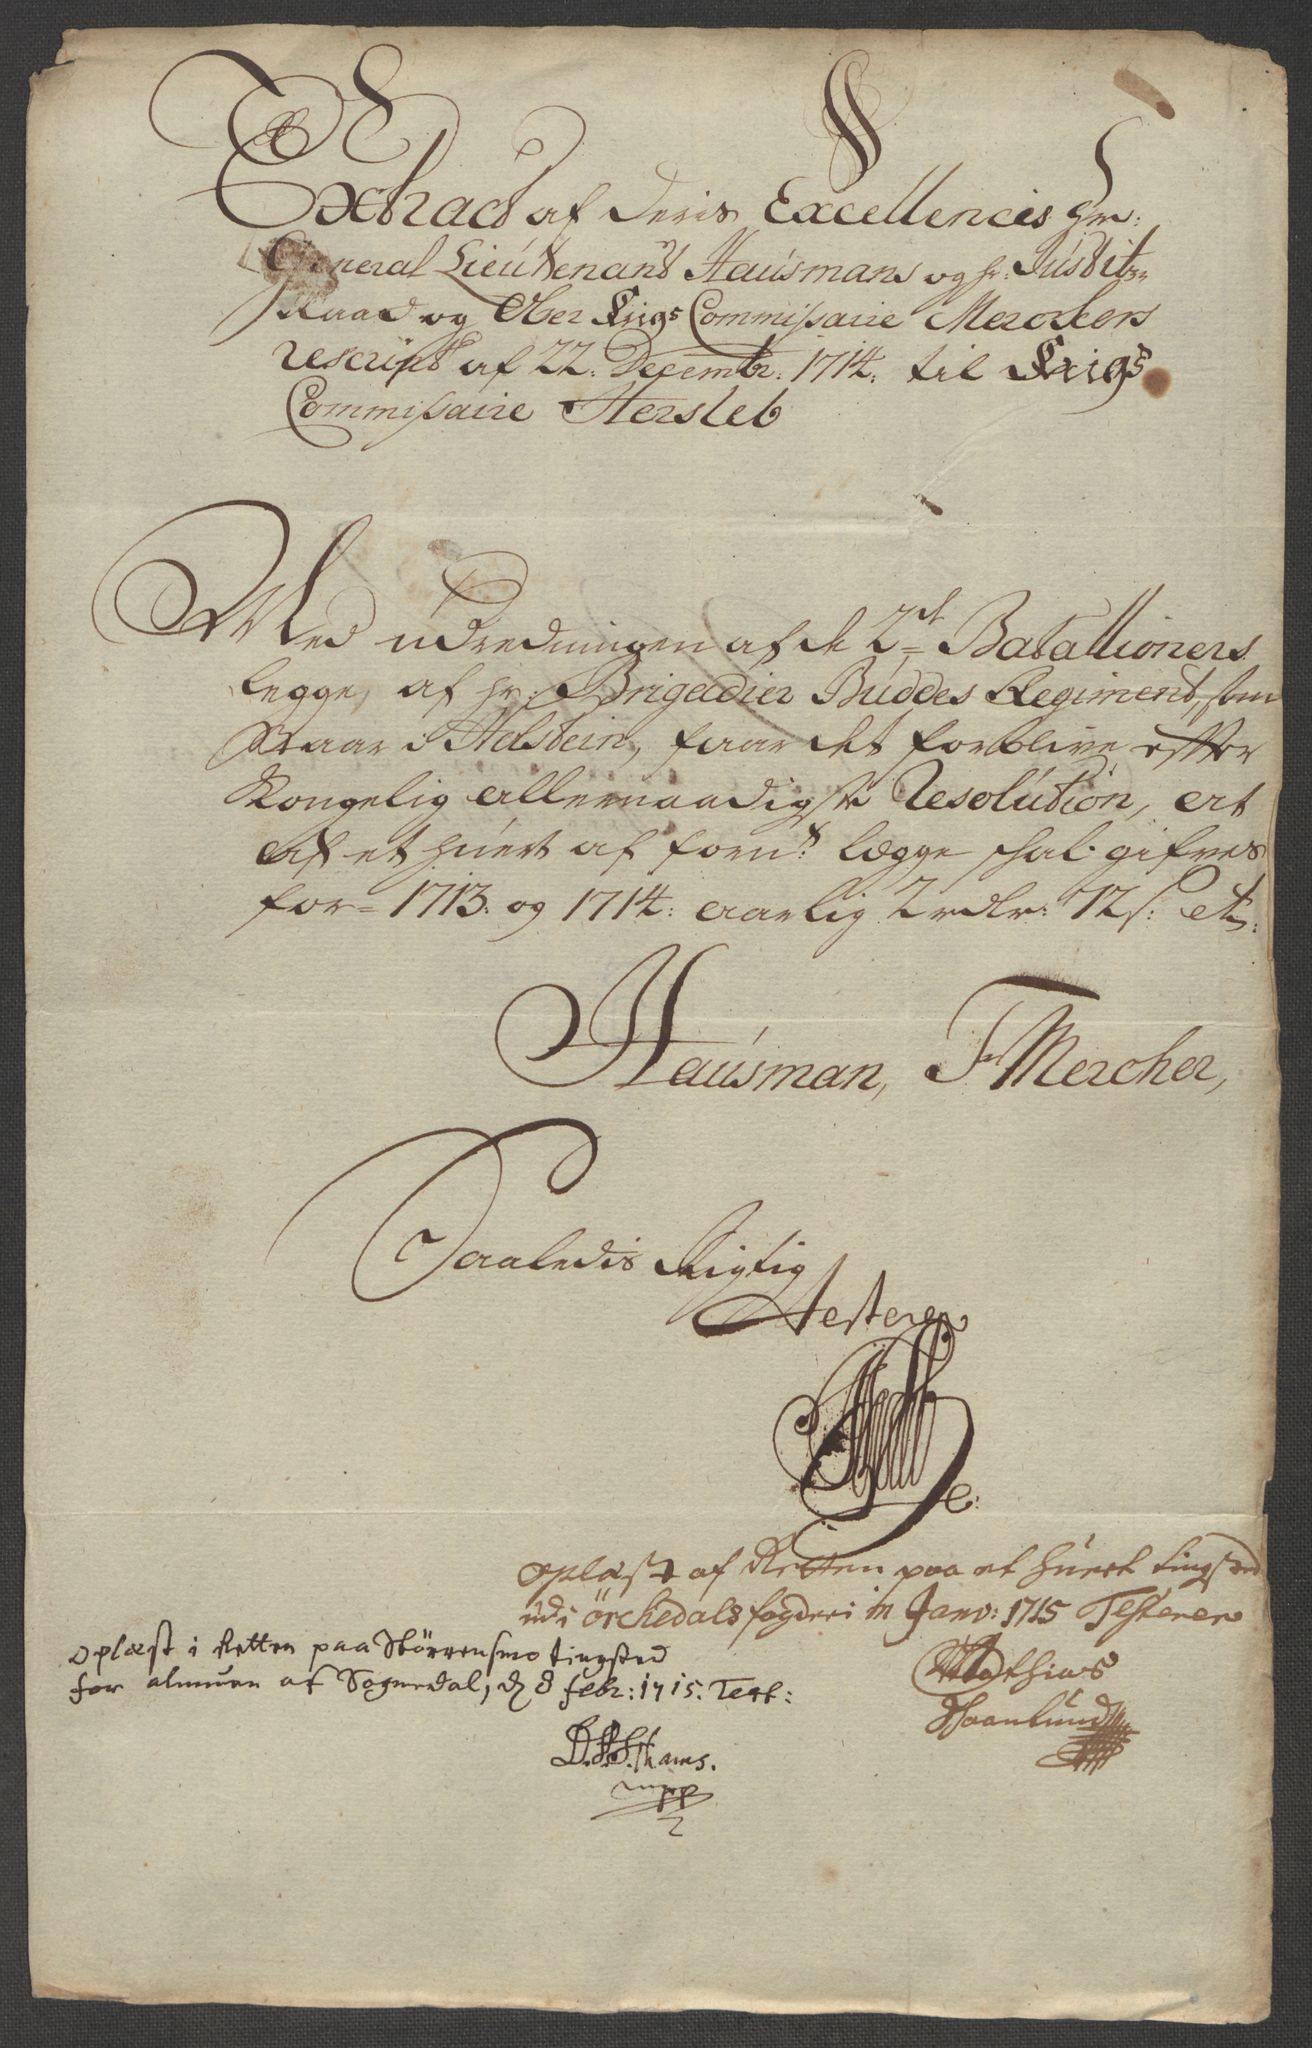 Extract af deris Excellences hr:
General Lieutenant Hausmans og hr: Justits
Raad og Ober Krigs Commissaire Merckers
rescript af 22: Decembr: 1714: til Krigs
Commissaire Hersleb
Med udredningen af de 2de Batallioners
legge, af hr: Brigadier Buddes Regiment, som
staar i Holstein, faar det forblive efter
Kongelig allernaadigste Resolution, at
af et huert af forn: lægge skal gifves
for 1713: og 1714: aarlig 2 rdlr: 72 s: etc:
Hausman, F Mercker,
Saaledis Rigtig
Testerer
oplæst af Retten paa et huert tingsted
udi Örchedals fogderi in Janv: 1715 Testerer
Mathias
oplæst i Retten paa Störrensmo tingsted
for almuen af Sognedal, d 8 febr: 1715. Test:
mpp